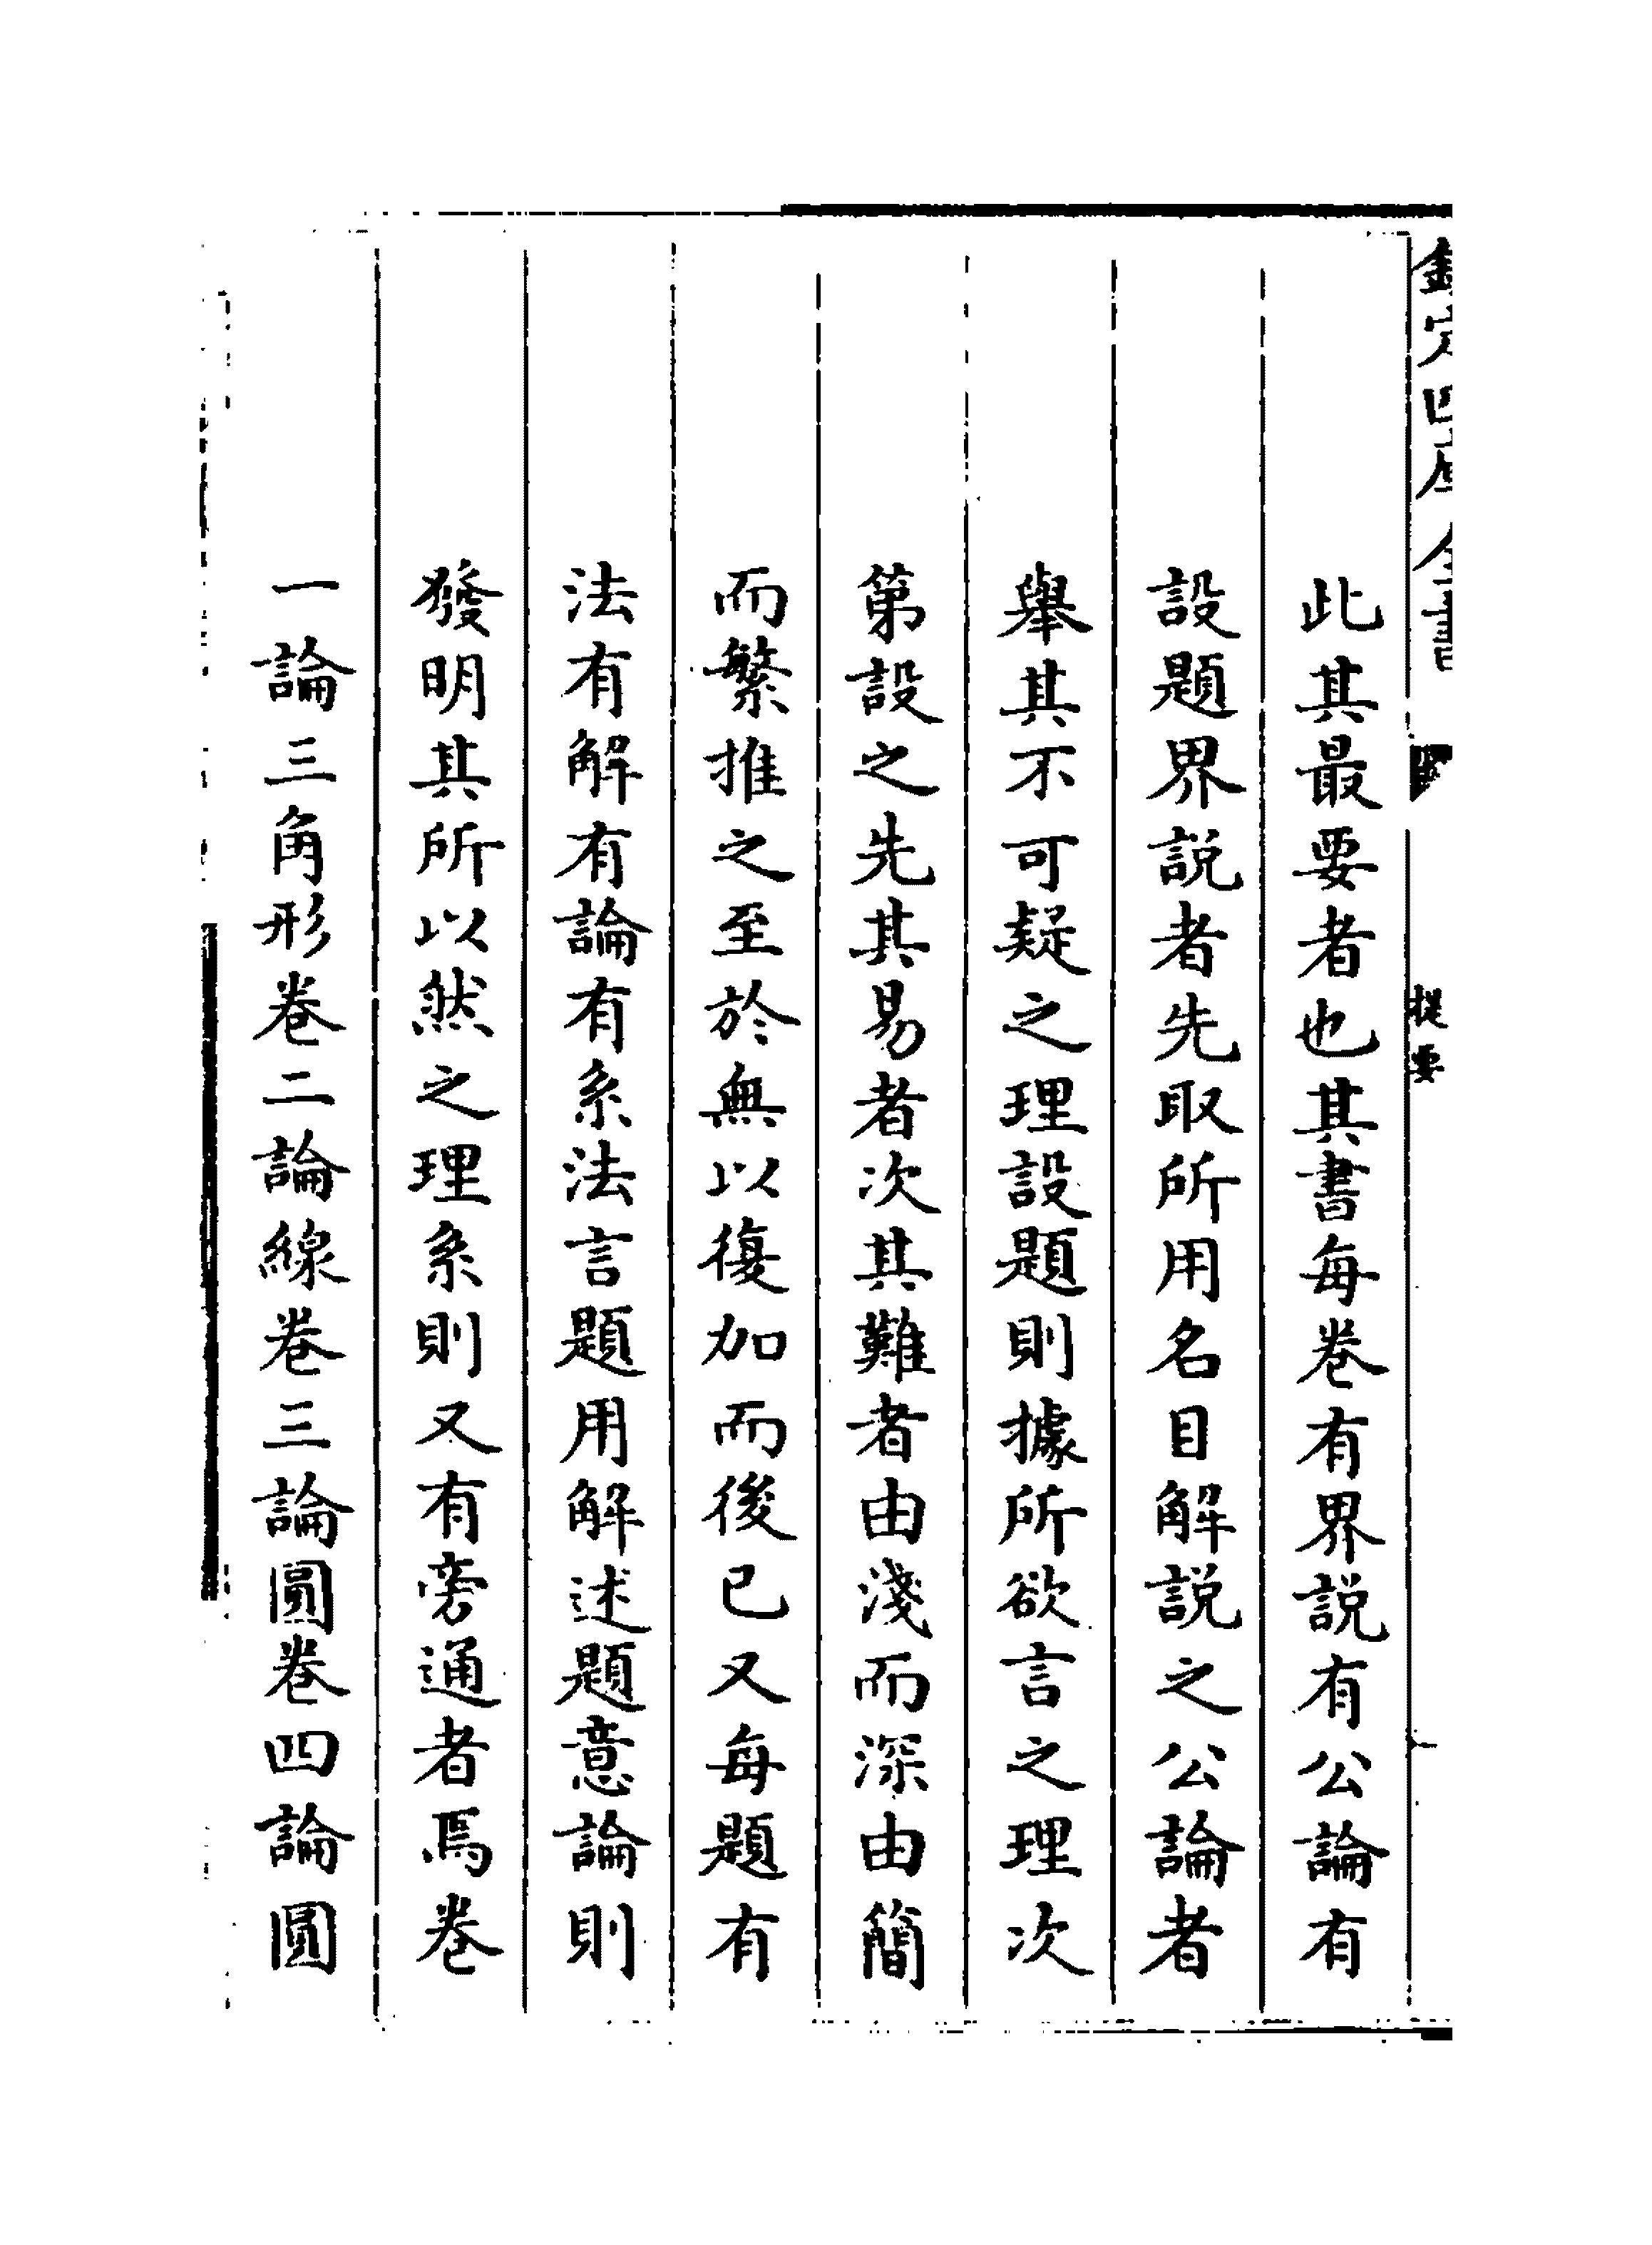 欽定四庫全書
提要
此其最要者也其書每卷有界説有公論有
設題界説者先取所用名目解説之公論者
舉其不可疑之理設題則據所欲言之理次
第設之先其易者次其難者由淺而深由簡
而繁推之至於無以復加而後已又每題有
法有解有論有系法言題用解述題意論則
發明其所以然之理系則又有旁通者焉卷
一論三角形卷二論線卷三論圓卷四論圓